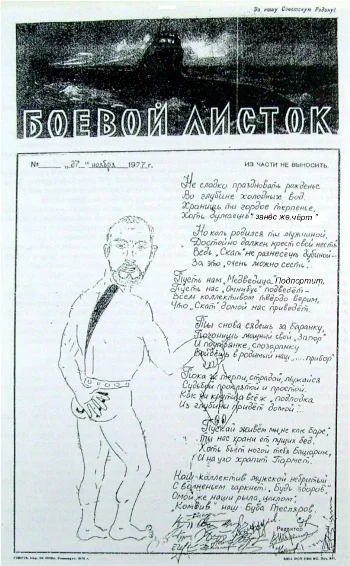 За нашу Советскую Родину!
БОЕВОЙ ЛИСТОК
№ „27" ноября 1977 г.
ИЗ ЧАСТИ НЕ ВЫНОСИТЬ.
Не сладко праздновать рожденье
Во глубине холодных вод.
Хранишь ты гордое терпенье,
Хоть думаешь "занёс же, чёрт"
Но коль родился ты мужчиной,
Достойно должен крест свой несть
Ведь „Скат" не разнесёшь дубиной-
За то, очень можно сесть!
Пусть нам „Медведица" Подпортит,
Пусть нас подведёт-
Всем коллективом твёрдо верим,
Что „Скат" домой нас приведёт.
Ты снова сядешь за баранку,
Погонишь мощный свой „Запор"
И поутрянке, спозаранку
в родимый наш „....прибор"
Пока ж терпи, страдай, мужайся
Судьбой проклятой и простой.
Как ни крути, а всё ж, подлодка
Из глубины придёт домой.
Пускай живём мы, не как баре,
Ты нас храни от лущих бед.
Хоть бьёт ногой тебя
И на ухо храпит
Наш коллектив мужской небритый
С волненьем гаркнет: „Будь здоров"
Омой же наши рыла,
наш Буба Тесляров.
Редактор